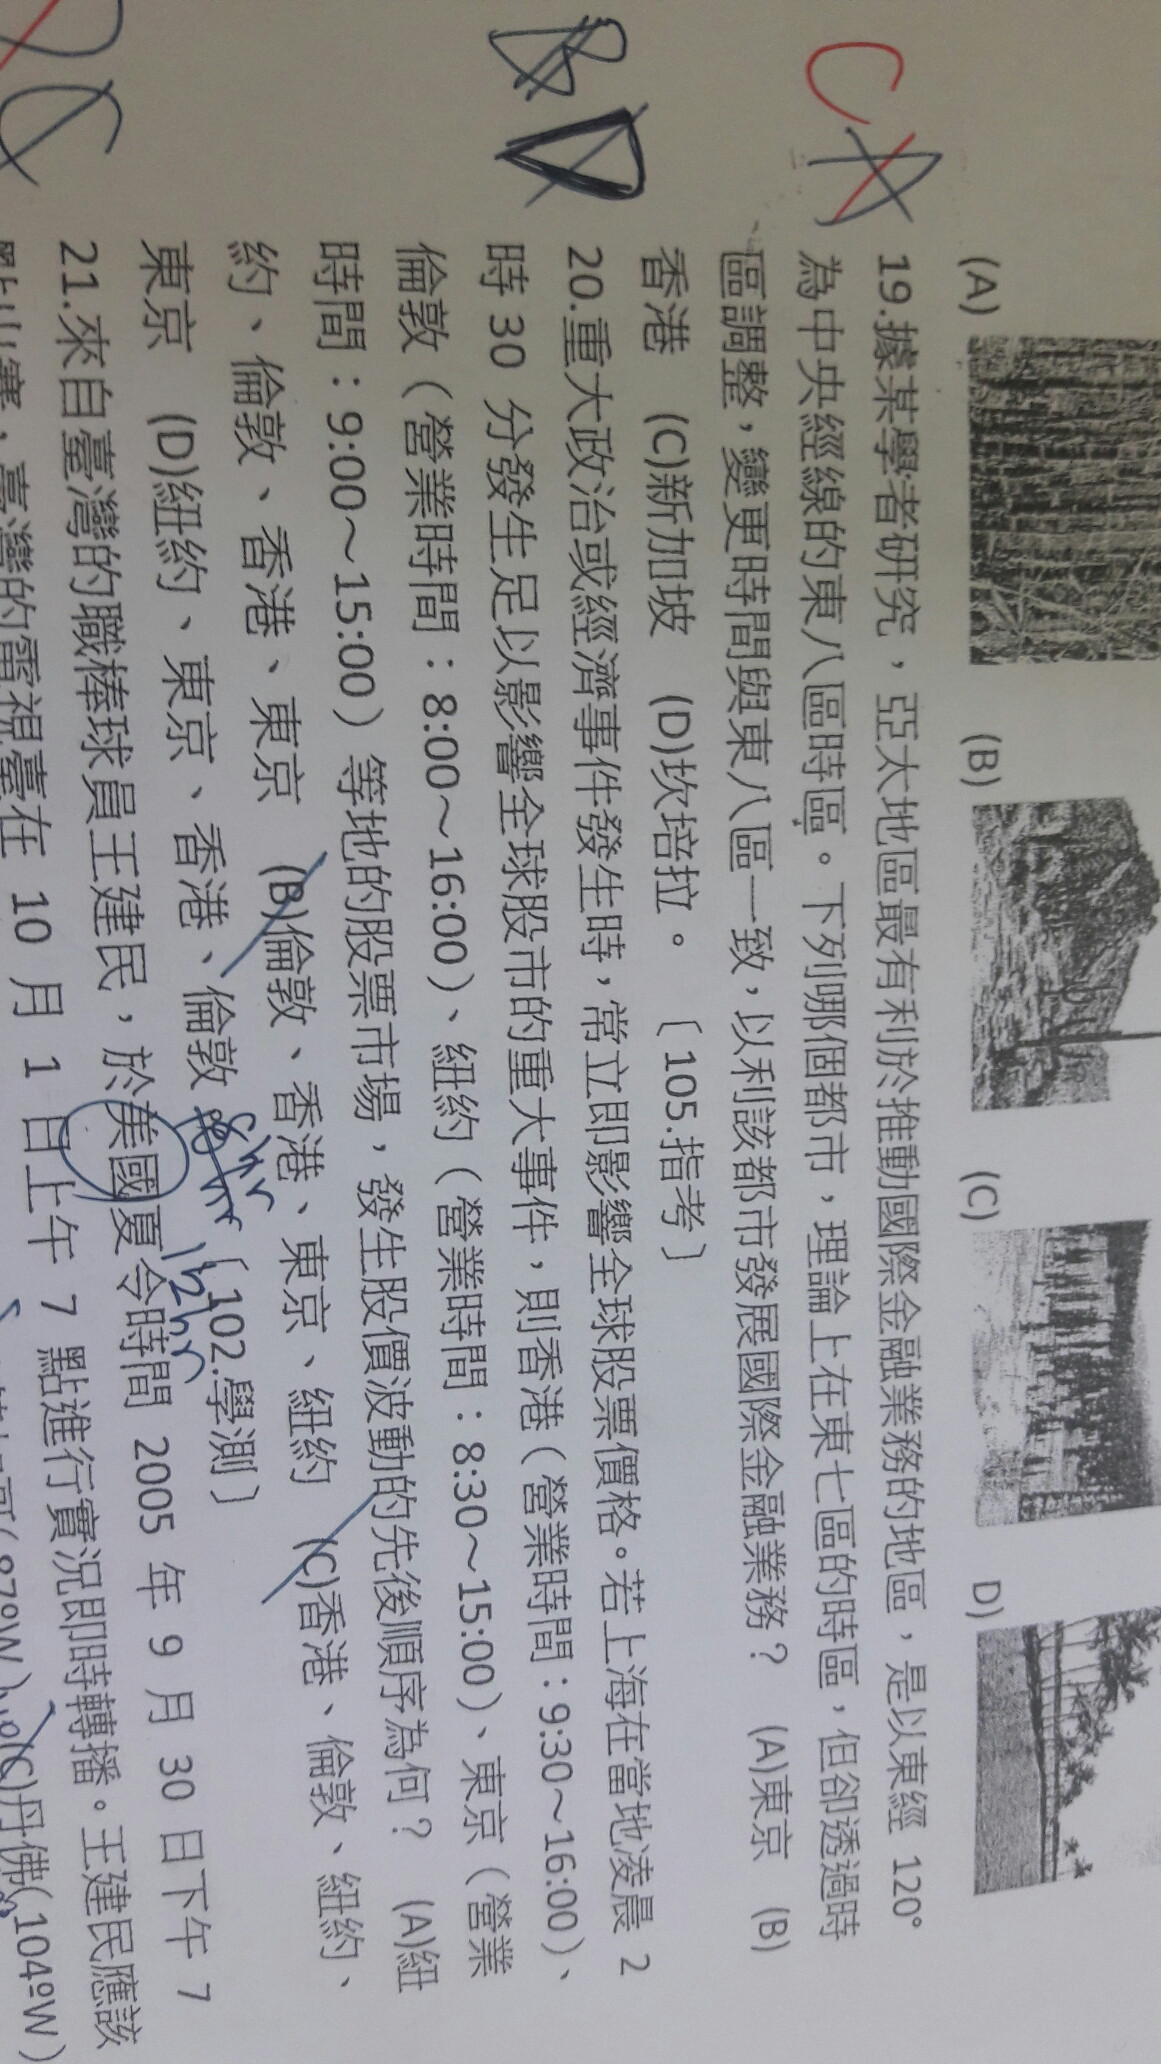 (A) (B) (C) D)
C A
19.據某學者研究，亞太地區最有利於推動國際金融業務的地區，是以東經 120°
為中央經線的東八區時區。下列哪個都市，理論上在東七區的時區，但卻透過時
區調整，變更時間與東八區一致，以利該都市發展國際金融業務？ (A)東京 (B)
香港 (C)新加坡 (D)坎培拉。〔105.指考〕
B D
20.重大政治或經濟事件發生時，常立即影響全球股票價格。若上海在當地凌晨 2
時 30 分發生足以影響全球股市的重大事件，則香港（營業時間：9:30～16:00）、
倫敦（營業時間：8:00～16:00）、紐約（營業時間：8:30～15:00）、東京（營業
時間：9:00～15:00）等地的股票市場，發生股價波動的先後順序為何？ (A)紐
約、倫敦、香港、東京 (B)倫敦、香港、東京、紐約 (C)香港、倫敦、紐約、
東京 (D)紐約、東京、香港、倫敦 〔102.學測〕
8hr
12hr
21.來自臺灣的職棒球員王建民，於美國夏令時間 2005 年 9 月 30 日下午 7
臺灣的電視臺在 10 月 1 日上午 7 點進行實況即時轉播。王建民應該
(C)丹佛(104ºW)